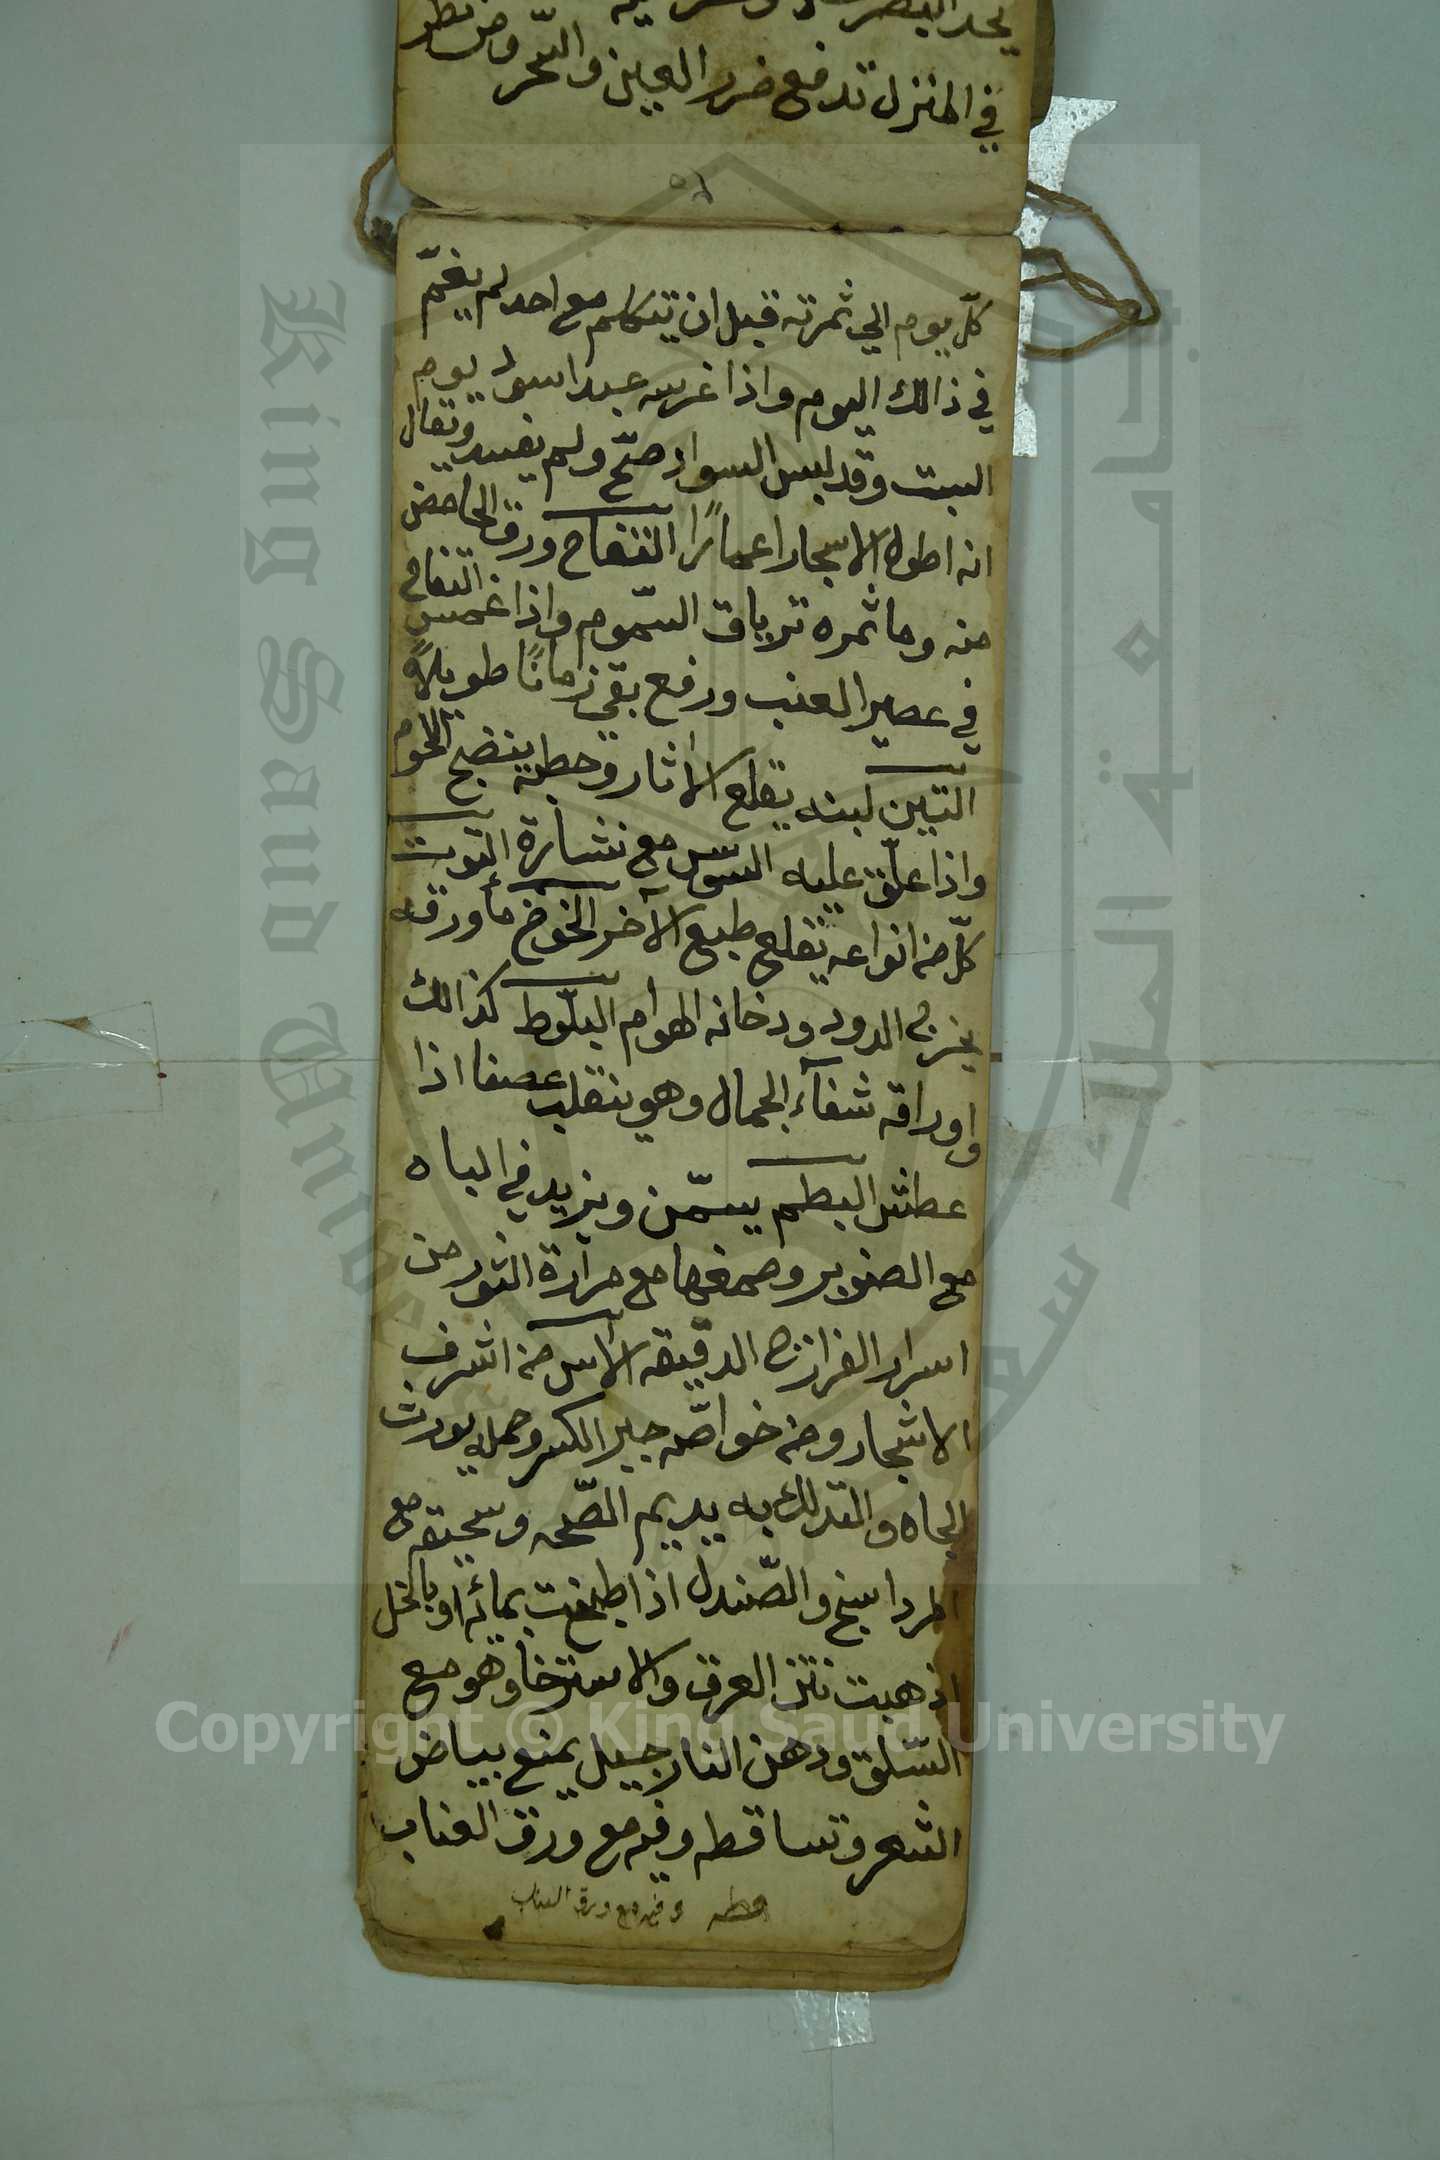 يحد البصر
في المنزل تدفع ضرر العين والسّحر ومن نظر
٥٦
كلّ يوم الي ثمرته قبل ان يتكلم مع احد لم يغتمّ
في ذالك اليوم واذا غرسه عبد اسود يوم
السبت وقد لبس السواد صحّ ولم يفسد ويقال
انه اطول الاسجار اعمارًا التفاح ورق الحامض
منه وما ثمره ترياق السّموم واذا غمس التفاح
في عصير العنب ورفع بقي زمانًا طويلاً
التين لبنه يقلع الاثار وحطبه ينضج اللحوم
واذا علّق عليه السوس مع نشارة التوت
كلّ من انواعه يقلع طبع الآخر الخوخ ماء ورقه
يخرج الدود ودخانه الهوام البلّوط كذالك
واوراقه شفآء الجمال وهو ينقلب عصفا اذا
عطش البطم يسمّن ويزيد في الباه
مع الصنوبر وصمغها مع مرارة الثور من
اسرار الفرازج الدقيقه الآس من اشرف
الاشجار ومن خواصّه جبر الكسر وحمله يورث
الجاه والتدلك به يديم الصّحه وسحيقه مع
المرداسنج والصّندل اذا طبخت بمائه او بالخل
اذهبت نتن العرق والاسترخا وهو مع
السّلق ودهن النارجيل يمنع بياض
الشعر وتساقطه وفيه مع ورق العناب
وفيه مع ورق العناب
Copyright © King Saud University
King Saud University
جامعة الملك سعود
1957